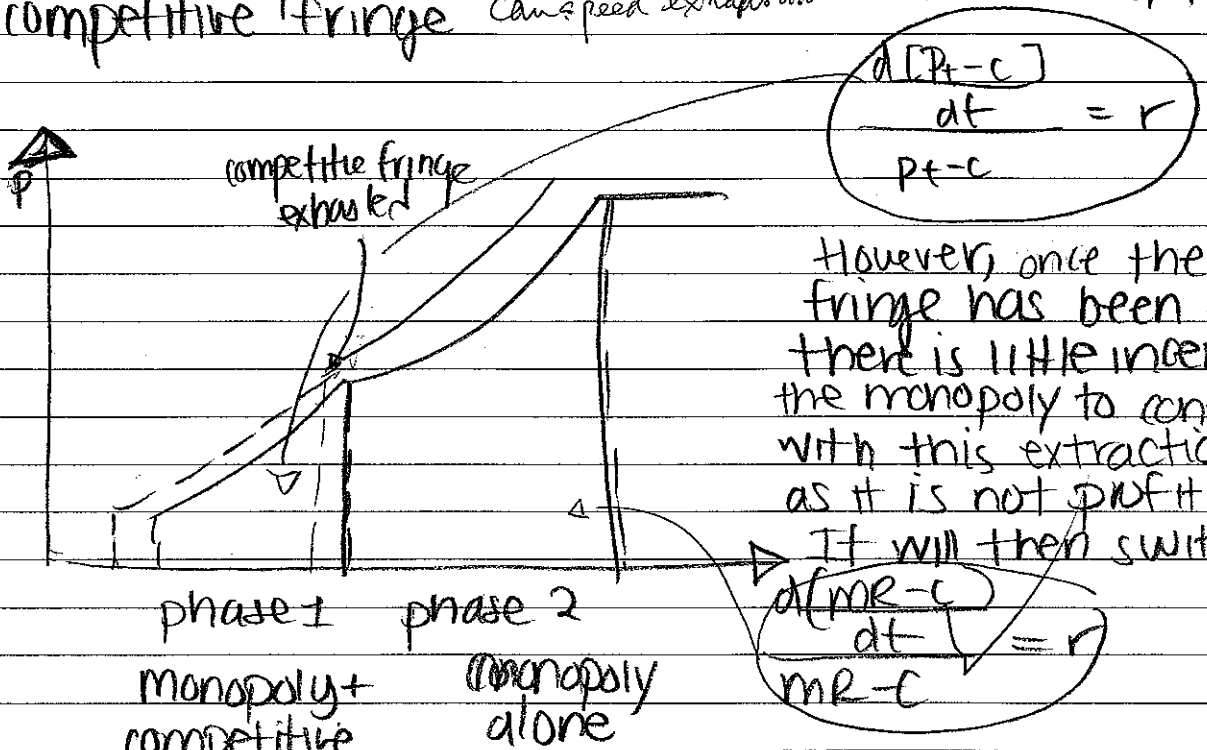 competitive fringe can speed
d[Pt-c]
dt
= r
Pt-c
P
competitie fringe
exhausted
However, once the
fringe has been
there is little incen
the monopoly to con
with this extractio
as it is not profit
It will then swit
phase 1 phase 2
monopoly+
competitive
monopoly
alone
d(MR-C)
dt
= r
MR-C